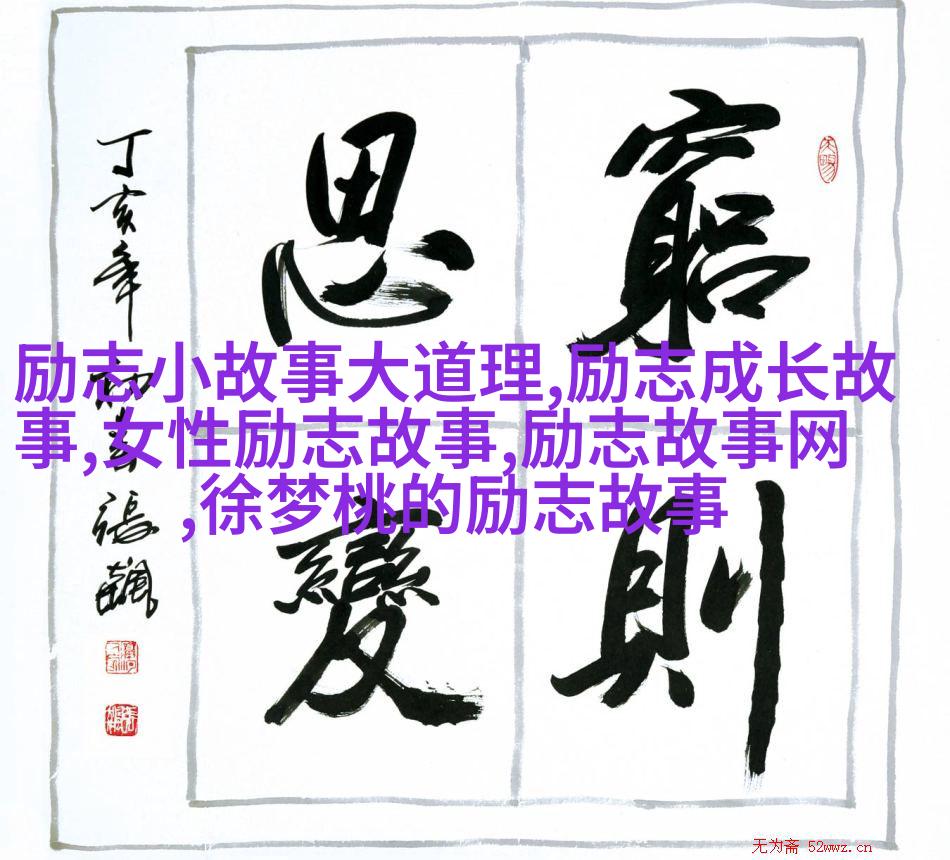 窮則
思變
丁亥年
張飆
励志小故事大道理,励志成长故
事,女性励志故事,励志故事网
,徐梦桃的励志故事
无为斋 52wwz.cn